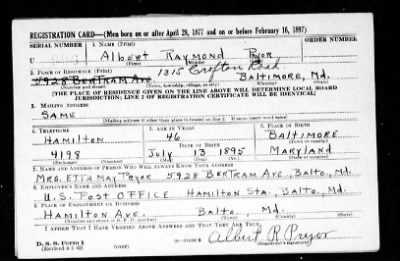 REGISTRATION CARD—(Men born on or after April 28, 1877 and on or before February 16, 1897)
SERIAL NUMBER 1. NAME (Print) ORDER NUMBER
U Albert RAYMOND Pryor
(First) (Middle) (Last)
1315 Crofton Road
2. PLACE OF RESIDENCE (Print)
5928 BERTRAM AVE. BALTIMORE, Md.
(Number and street) (Town, township, village, or city) (County) (State)
[THE PLACE OF RESIDENCE GIVEN ON THE LINE ABOVE WILL DETERMINE LOCAL BOARD
JURISDICTION; LINE 2 OF REGISTRATION CERTIFICATE WILL BE IDENTICAL]
3. MAILING ADDRESS
SAME
[Mailing address if other than place indicated on line 2. If same insert word same]
4. TELEPHONE 5. AGE IN YEARS 6. PLACE OF BIRTH
HAMILTON 46 BALTIMORE
DATE OF BIRTH (Town or county)
4198 July 13 1895 MARYLAND
(Exchange) (Number) (Mo.) (Day) (Yr.) (State or country)
7. NAME AND ADDRESS OF PERSON WHO WILL ALWAYS KNOW YOUR ADDRESS
MRS. ETTA MAE PRYOR 5928 BERTRAM AVE., BALTO., Md.
8. EMPLOYER'S NAME AND ADDRESS
U.S. POST OFFICE HAMILTON STA., BALTO, Md.
9. PLACE OF EMPLOYMENT OR BUSINESS
HAMILTON AVE. BALTO. Md.
(Number and street or R. F. D. number) (Town) (County) (State)
I AFFIRM THAT I HAVE VERIFIED ABOVE ANSWERS AND THAT THEY ARE TRUE.
D. S. S. Form 1 Albert R. Pryor
(Revised 4-1-42) (over) (Registrant's signature)